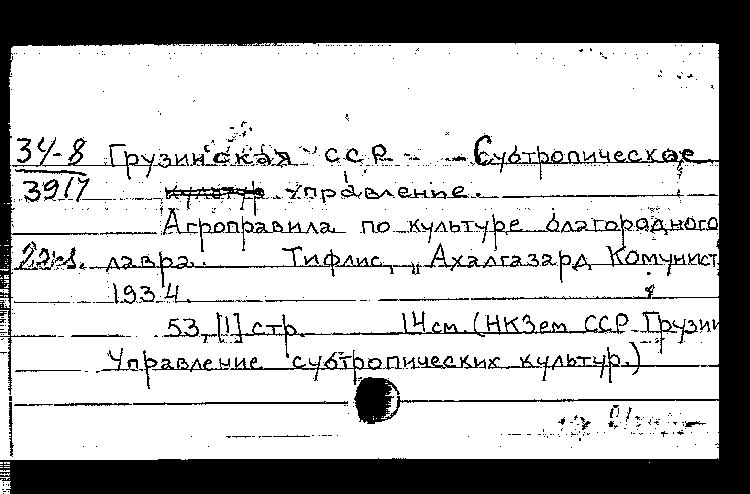 34-8 Грузинская ССР - - Субтропическое
3917 культур управление.
Агроправила по культуре благородного
лавра. Тифлис, „Ахалгазард Комунист
1934.
53, [1] стр. 14 см. (НКЗем ССР Грузии
Управление субтропических культур.)